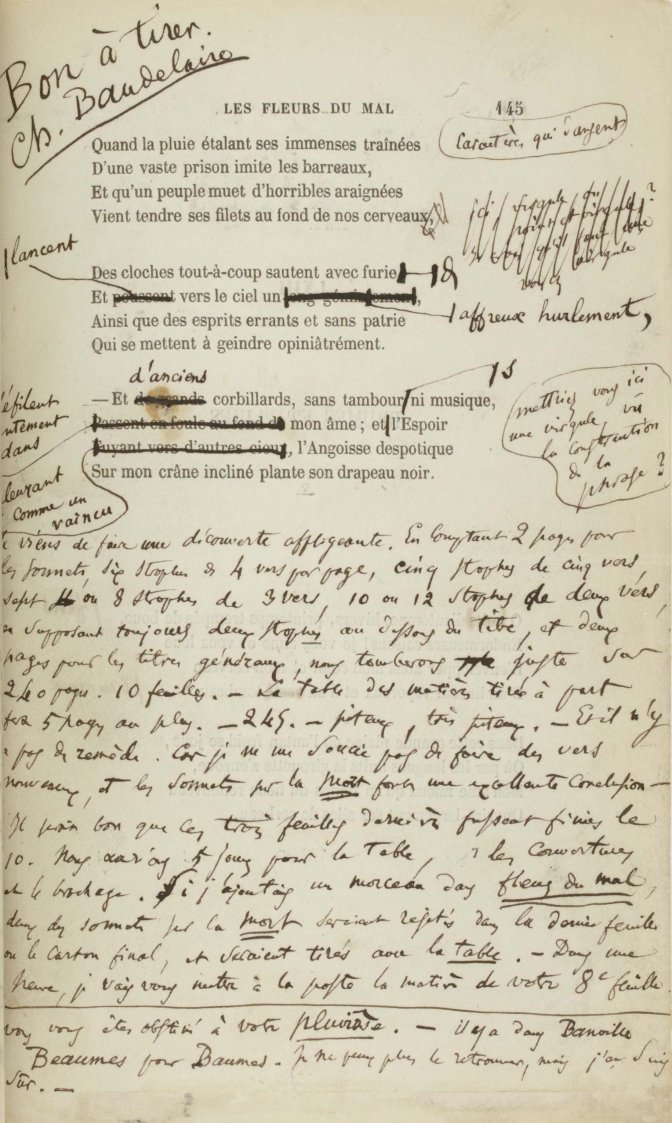 Bon à tirer.
Ch. Baudelaire
LES FLEURS DU MAL 145
Caractères qui dansent
Quand la pluie étalant ses immenses traînées
D'une vaste prison imite les barreaux,
Et qu'un peuple muet d'horribles araignées
Vient tendre ses filets au fond de nos cerveaux,
ici virgule ou
point et virgule?
virgule
lancent
Des cloches tout-à-coup sautent avec furie
Et poussent vers le ciel un long gémissement,
affreux hurlement,
Ainsi que des esprits errants et sans patrie
Qui se mettent à geindre opiniâtrément.
d'anciens
s
— Et de grands corbillards, sans tambour ni musique,
Passent en foule au fond de mon âme ; et l'Espoir
Fuyant vers d'autres cieux, l'Angoisse despotique
Sur mon crâne incliné plante son drapeau noir.
éfilent
ntement
dans
leurant
comme un
vaincu
mettriez vous ici
une virgule, vu
la construction
de la
phrase?
viens de faire une découverte affligeante. En comptant 2 pages pour
les sonnets, six strophes de 4 vers par page, cinq strophes de cinq vers,
sept ou 8 strophes de 3 vers, 10 ou 12 strophes de deux vers,
en supposant toujours deux strophes au dessous du titre, et deux
pages pour les titres généraux, nous tomberons juste sur
240 pages. 10 feuilles. — La table des matières tirée à part
fera 5 pages au plus. — 245. — piteux, très piteux. — Et il n'y
a pas de remède. Car je ne me soucie pas de faire des vers
nouveaux, et les sonnets sur la Mort font une excellente conclusion —
Il serait bon que ces trois feuilles dernières fussent finies le
10. Nous aurions 5 jours pour la table, les couvertures
et le brochage. Si j'ajoutais un morceau dans fleurs du mal,
deux des sonnets sur la Mort seraient rejetés dans la dernière feuille
ou le carton final, et seraient tirés avec la table. — Dans une
heure, je vais vous mettre à la poste la matière de votre 8e feuille.
vous vous êtes obstiné à votre pluviôse. — il y a dans Banville
Beaumes pour Baumes. Je ne peux plus le retrouver, mais j'en suis
sûr. —